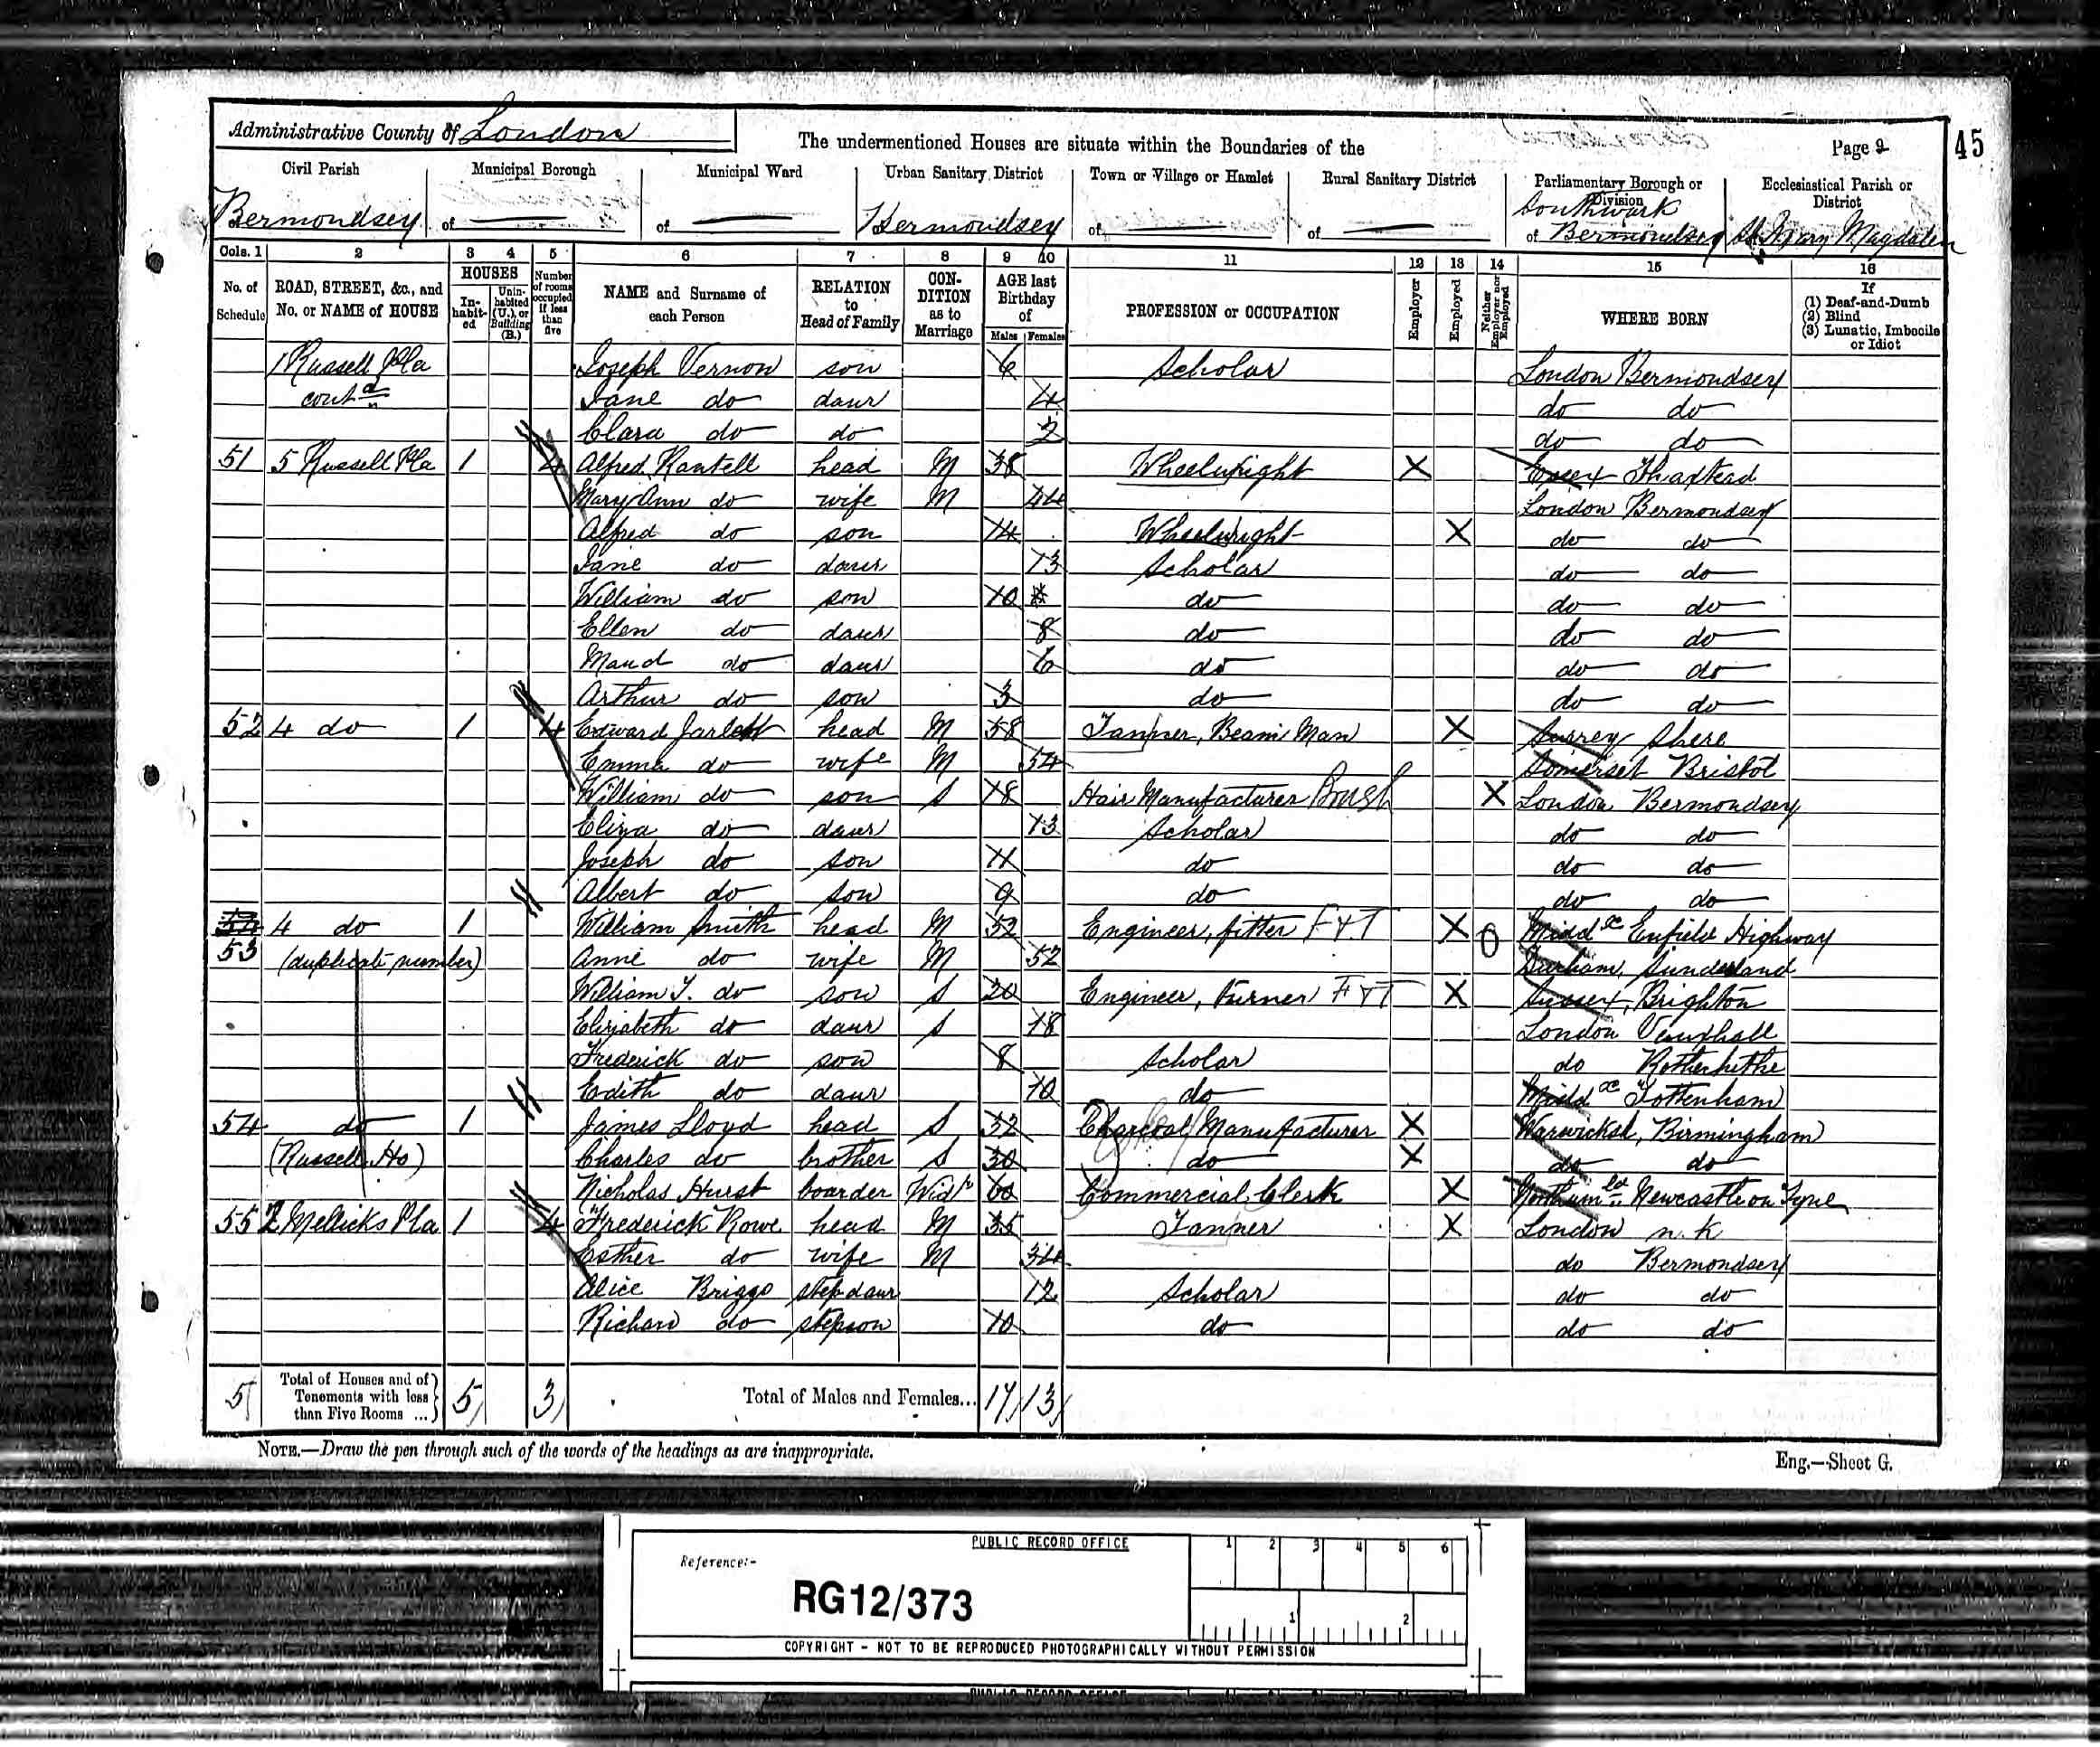 Administrative County of London
The undermentioned Houses are situate within the Boundaries of the
Page 9
45
Civil Parish
Bermondsey
Municipal Borough
of
Municipal Ward
of
Urban Sanitary District
Bermondsey
Town or Village or Hamlet
of
Rural Sanitary District
of
Parliamentary Borough or Division
Southwark
of Bermondsey
Ecclesiastical Parish or District
St Mary Magdalen
Cols. 1 2 3 4 5 6 7 8 9 10 11 12 13 14 15 16
No. of Schedule
ROAD, STREET, &c., and No. or NAME of HOUSE
HOUSES
In-habit-ed
Unin-habited (U.), or Building (B.)
Number of rooms occupied if less than five
NAME and Surname of each Person
RELATION to Head of Family
CON-DITION as to Marriage
AGE last Birthday of
Males Females
PROFESSION or OCCUPATION
Employer
Employed
Neither Employer nor Employed
WHERE BORN
If
(1) Deaf-and-Dumb
(2) Blind
(3) Lunatic, Imbecile or Idiot
1 Russell Pla Joseph Vernon son 6 Scholar London Bermondsey
contd Jane do daur 4 do do
Clara do do 2 do do
51 5 Russell Pla 1 4 Alfred Rantell head M 38 Wheelwright X Essex Thaxtead
Mary Ann do wife M 44 London Bermondsey
Alfred do son 14 Wheelwright X do do
Jane do daur 13 Scholar do do
William do son 10 do do do
Ellen do daur 8 do do do
Maud do daur 6 do do do
Arthur do son 3 do do do
52 4 do 1 4 Edward Jarlett head M 58 Tanner, Beam Man X Surrey Shere
Emma do wife M 54 Somerset Bristol
William do son S 18 Hair Manufacturer Brush X London Bermondsey
Eliza do daur 13 Scholar do do
Joseph do son 11 do do do
Albert do son 9 do do do
54 4 do 1 William Smith head M 52 Engineer, fitter F & T X 0 Middx Enfield Highway
53 (duplicate number) Anne do wife M 52 Durham, Sunderland
William T. do son S 20 Engineer, turner F & T X Sussex, Brighton
Elizabeth do daur S 18 London Vauxhall
Frederick do son 8 Scholar do Rotherhithe
Edith do daur 10 do Middx Tottenham
54 do 1 James Lloyd head S 32 Charcoal Manufacturer X Warwicksh, Birmingham
(Russell Ho) Charles do brother S 30 do X do do
Nicholas Hurst boarder Widr 60 Commercial Clerk X Northumld Newcastle on Tyne
55 2 Mellicks Pla 1 4 Frederick Rowe head M 35 Tanner X London n.k
Esther do wife M 34 do Bermondsey
Alice Briggs stepdaur 12 Scholar do do
Richard do stepson 10 do do do
5 Total of Houses and of Tenements with less than Five Rooms ... 5 3 Total of Males and Females... 17 13
NOTE.—Draw the pen through such of the words of the headings as are inappropriate.
Eng.—Sheet G.
PUBLIC RECORD OFFICE
1 2 3 4 5 6
Reference:-
RG12/373
1 2
COPYRIGHT - NOT TO BE REPRODUCED PHOTOGRAPHICALLY WITHOUT PERMISSION